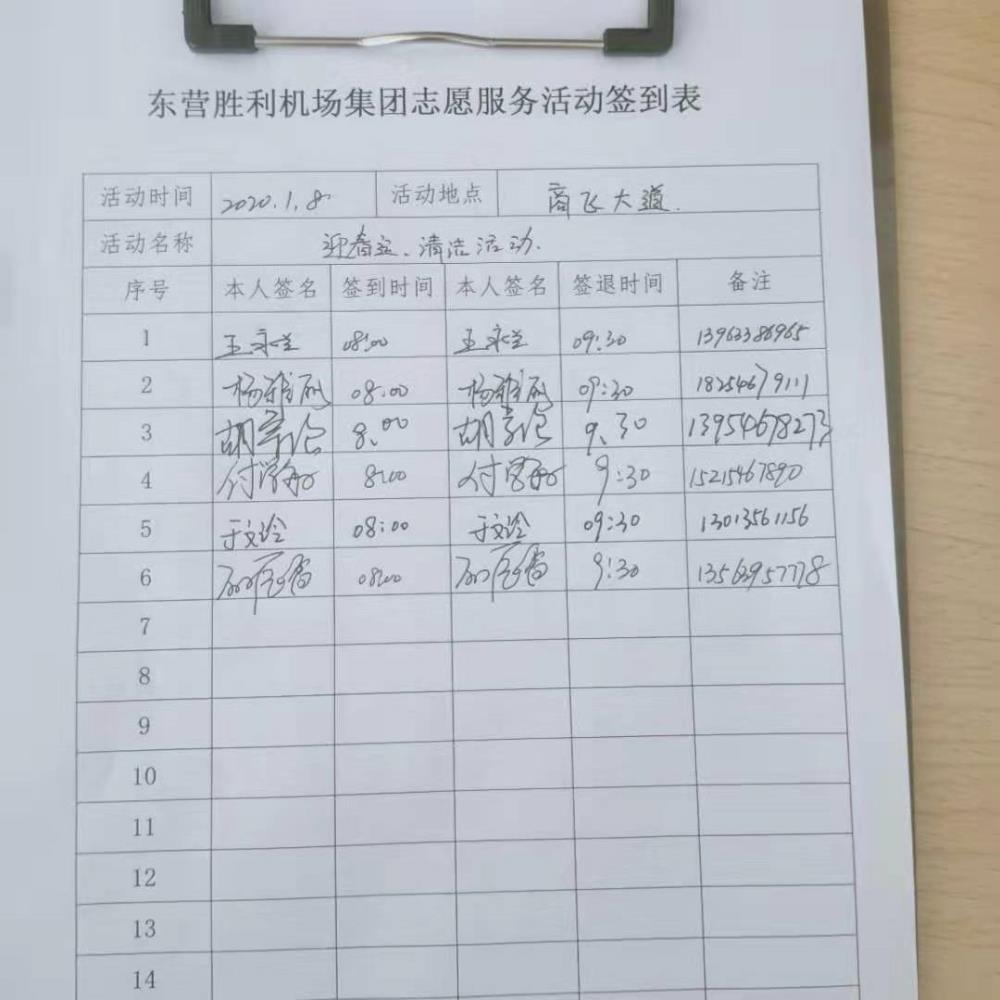 东营胜利机场集团志愿服务活动签到表
活动时间 2020.1.8 活动地点 商飞大道.
活动名称 迎春运、清洁活动.
序号 本人签名 签到时间 本人签名 签退时间 备注
1 王永兰 08:00 王永兰 09:30 13963386965
2 08.00 09:30 18254679111
3 8.00 9.30 13954678273
4 8:00 9:30 15215467890
5 于文玲 08:00 于文玲 09:30 13013561156
6 08:00 9:30 13563957778
7
8
9
10
11
12
13
14